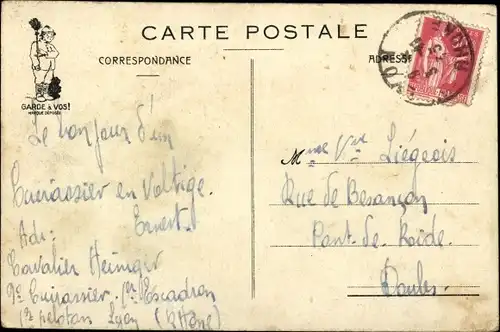 CARTE POSTALE
CORRESPONDANCE
ADRESSE
GARDE à VOS!
MARQUE DÉPOSÉE
Le bonjour d'un
Cuirassier en Voltige.
Ernest
Adr:
Cavalier Heiniger
9e Cuirassier, 1er Escadron
1er peloton Lyon (Rhône)
Mme Vve Liégeois
Rue de Besançon
Pont-de Roide.
Doubs.